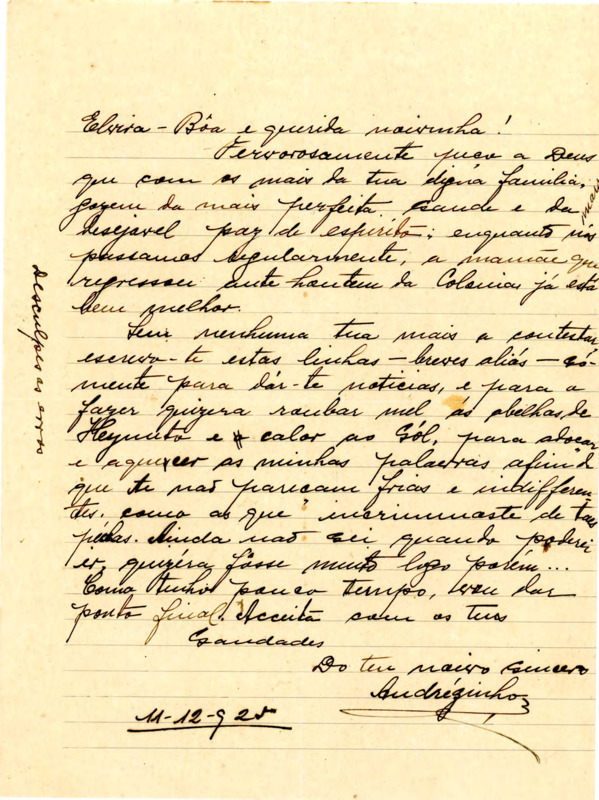 Elvira - Bôa e querida noivinha!
Fervorosamente peço a Deus
que com os mais da tua digna familia,
gozem da mais perfeita saude e da mais
desejavel paz de espirito; enquanto nós
passamos regularmente, a mamãe que
regressou ante hontem da Colonia já está
bem melhor.
Sem nenhuma tua mais a contestar,
escrevo-te estas linhas - breves aliás - só-
mente para dár-te noticias, e para o
fazer quizera roubar mel ás abelhas, de
e calor ao Sól, para adoçar
e aquecer as minhas palavras afim d
que te naõ pareçam frias e indifferen
tes, como as que incriminaste de taes
Ainda naõ sei quando poderei
ir, quizéra fôsse muito logo porém...
Como tenho pouco tempo, vou dar
ponto final. Acceita com os teus
Saudades
Do teu noivo sincero
Andrézinho
11-12-925
desculpes os erros